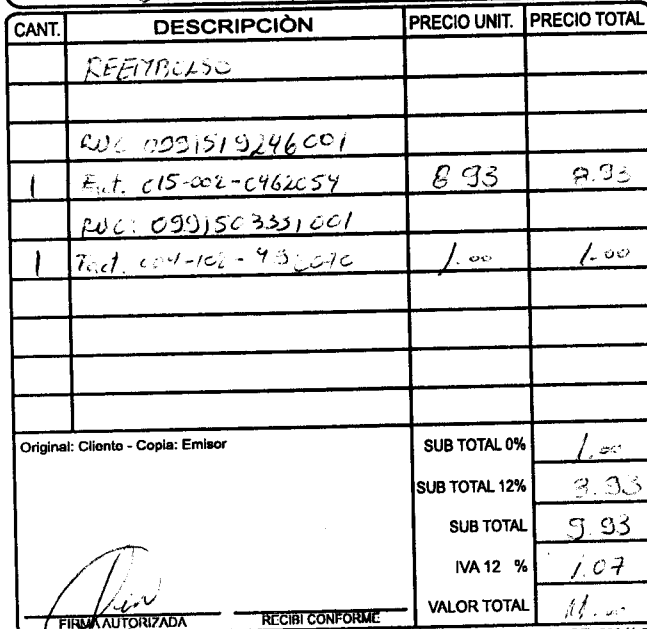 CANT. DESCRIPCIÒN PRECIO UNIT. PRECIO TOTAL
REEMBOLSO
RUC 0991519246001
1 Fact. 015-002-0462054 8.93 8.93
RUC: 0991503331001
1 Fact. 1.00 1.00
Original: Cliente - Copia: Emisor
SUB TOTAL 0% 1.00
SUB TOTAL 12% 8.93
SUB TOTAL 9.93
IVA 12 % 1.07
VALOR TOTAL 11.00
FIRMA AUTORIZADA RECIBI CONFORME